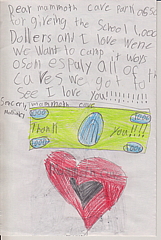 Dear mammoth cave park
for giveing the School 1,000
Dollers and I love
We Want to camp it was
all of the
caves we got to
See I love you!!!!!!!!!!
Sincerly, mammoth cave
1000 1000
Thank you!!!!
1000 1000